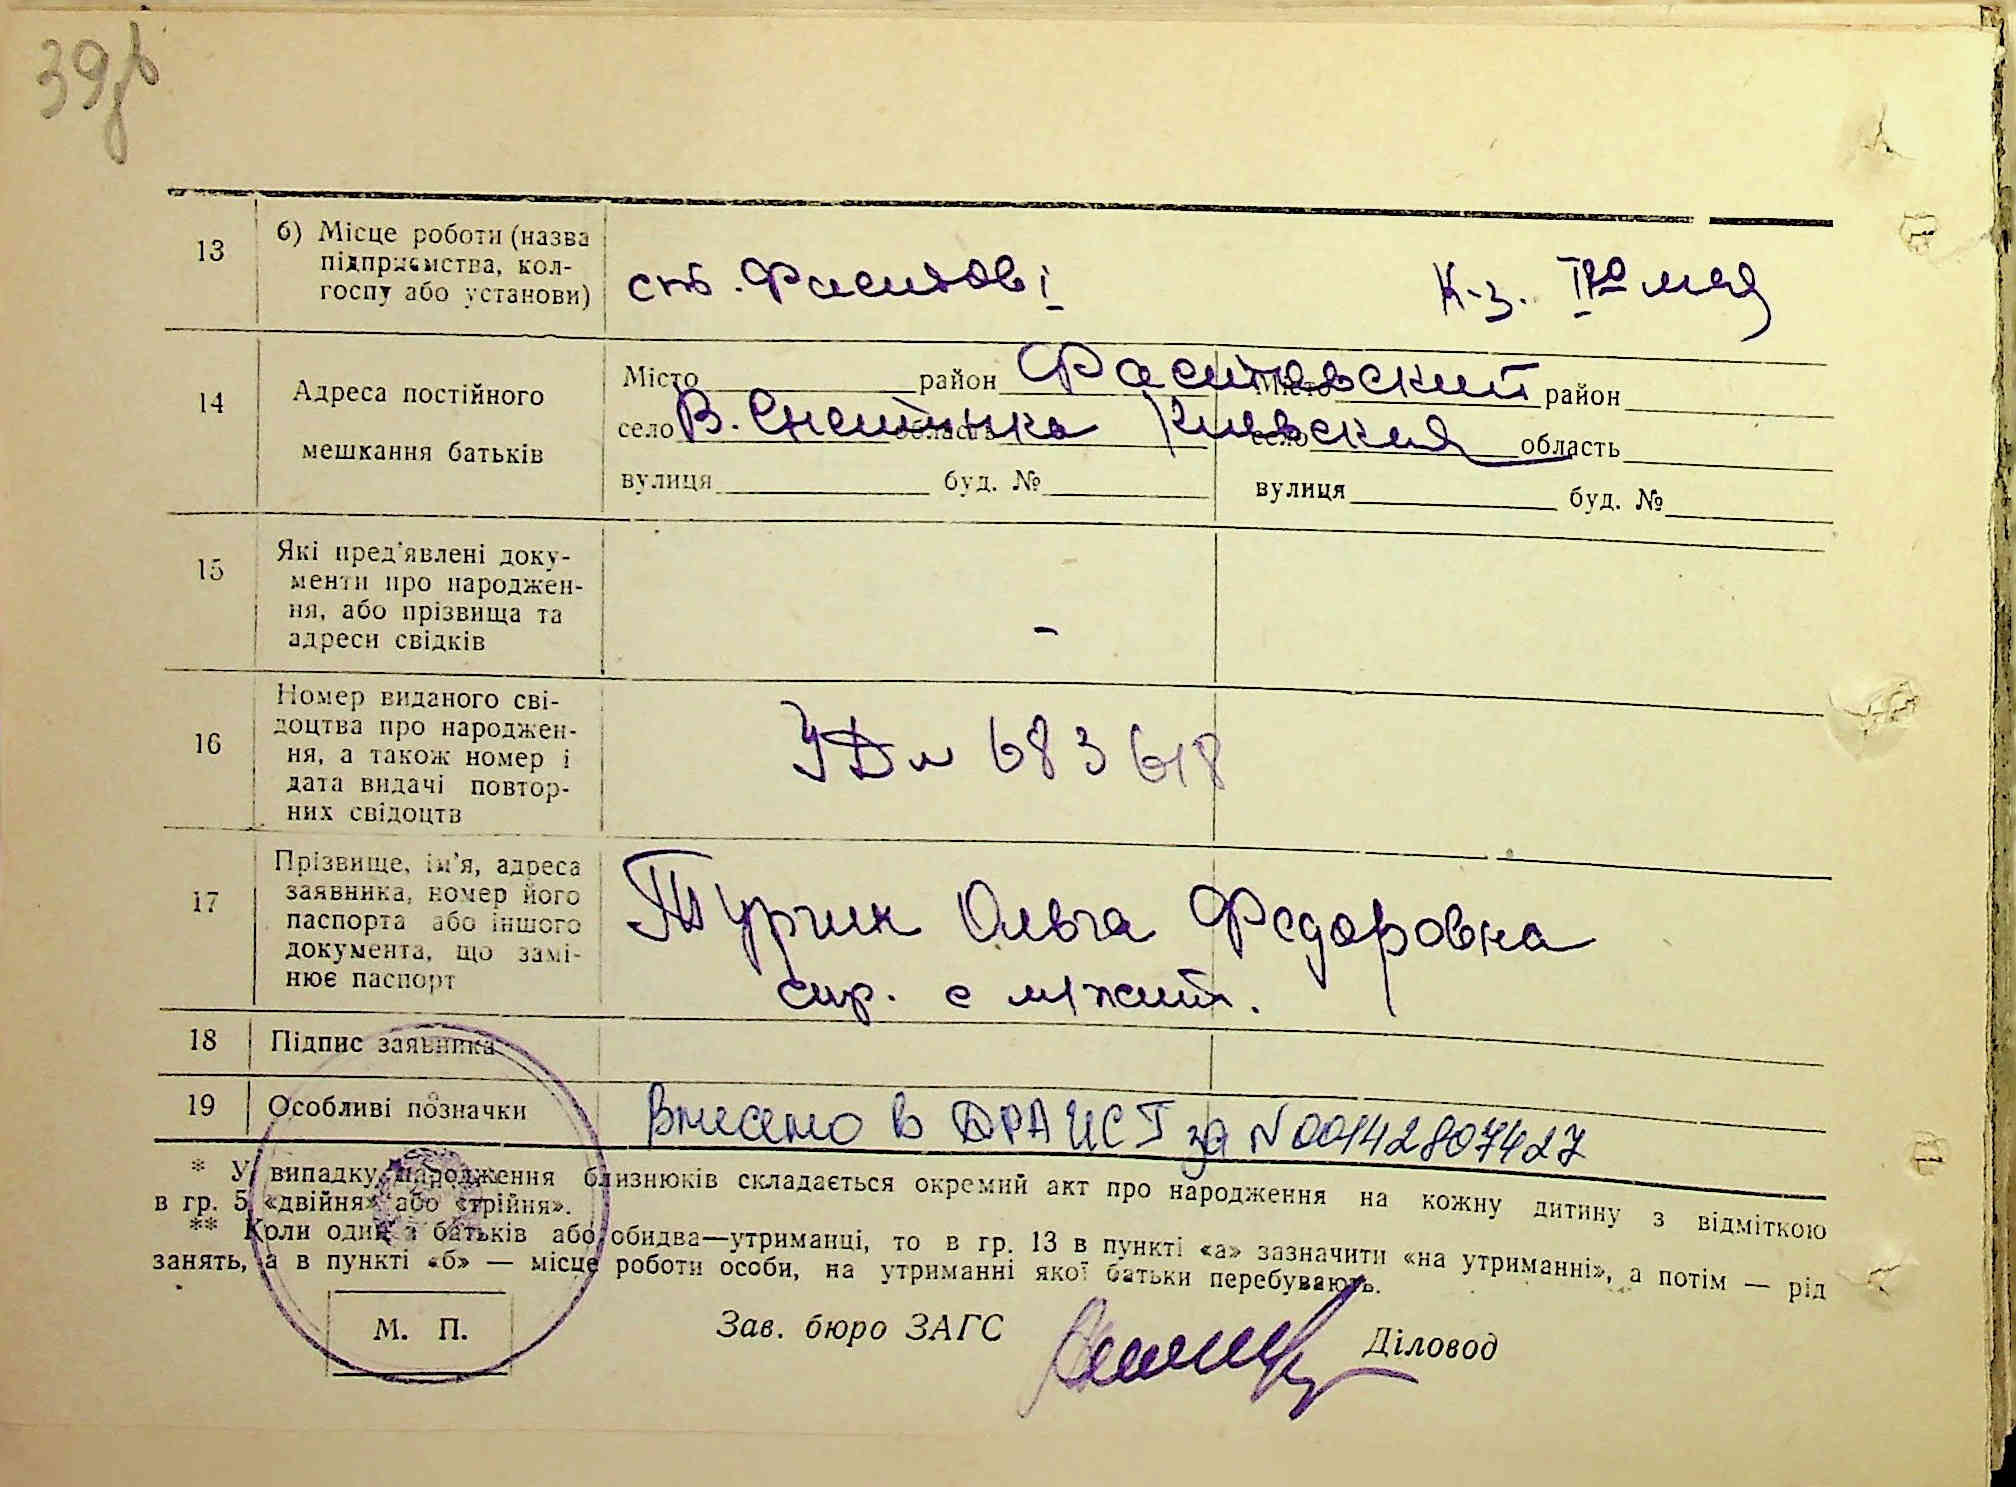 39
13 б) Місце роботи (назва
підприємства, кол-
госпу або установи)
ст. Фастов I К-з. Iго мая
14 Адреса постійного
мешкання батьків
Місто район Фастовский Місто район
село В. Снетинка область Киевская село область
вулиця буд. № вулиця буд. №
15 Які пред'явлені доку-
менти про народжен-
ня, або прізвища та
адреси свідків
-
16 Номер виданого сві-
доцтва про народжен-
ня, а також номер і
дата видачі повтор-
них свідоцтв
УД № 683618
17 Прізвище, ім'я, адреса
заявника, номер його
паспорта або іншого
документа, що замі-
нює паспорт
Турчин Ольга Федоровна
спр. с
18 Підпис заявника
19 Особливі позначки
Внесено в ДРАЦСГ за N 00142807427
* У випадку народження близнюків складається окремий акт про народження на кожну дитину з відміткою
в гр. 5 «двійня» або «трійня».
** Коли один з батьків або обидва—утриманці, то в гр. 13 в пункті «а» зазначити «на утриманні», а потім — рід
занять, а в пункті «б» — місце роботи особи, на утриманні якої батьки перебувають.
М. П. Зав. бюро ЗАГС Діловод